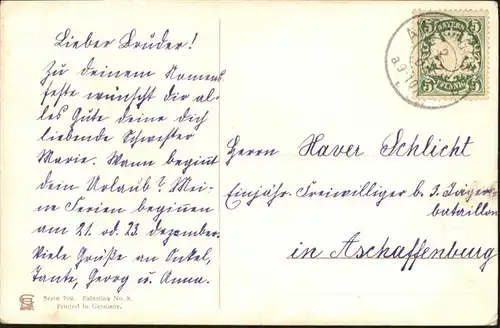 Lieber Bruder!
Zu deinem Namens
feste wünscht dir al-
les Gute deine dich
liebende Schwester
Marie. Wann beginnt
dein Urlaub? Mei-
ne Ferien beginnen
am 21. od. 23. dezember.
Viele Grüße an Onkel,
Tante, Georg u. Anna.
Serie 769. Palatina No. 8.
Printed in Germany.
5 BAYERN 5
5 PFENNIG 5
Herrn Xaver Schlicht
Einjähr. Freiwilliger b. 3. Jäger-
bataillon
in Aschaffenburg